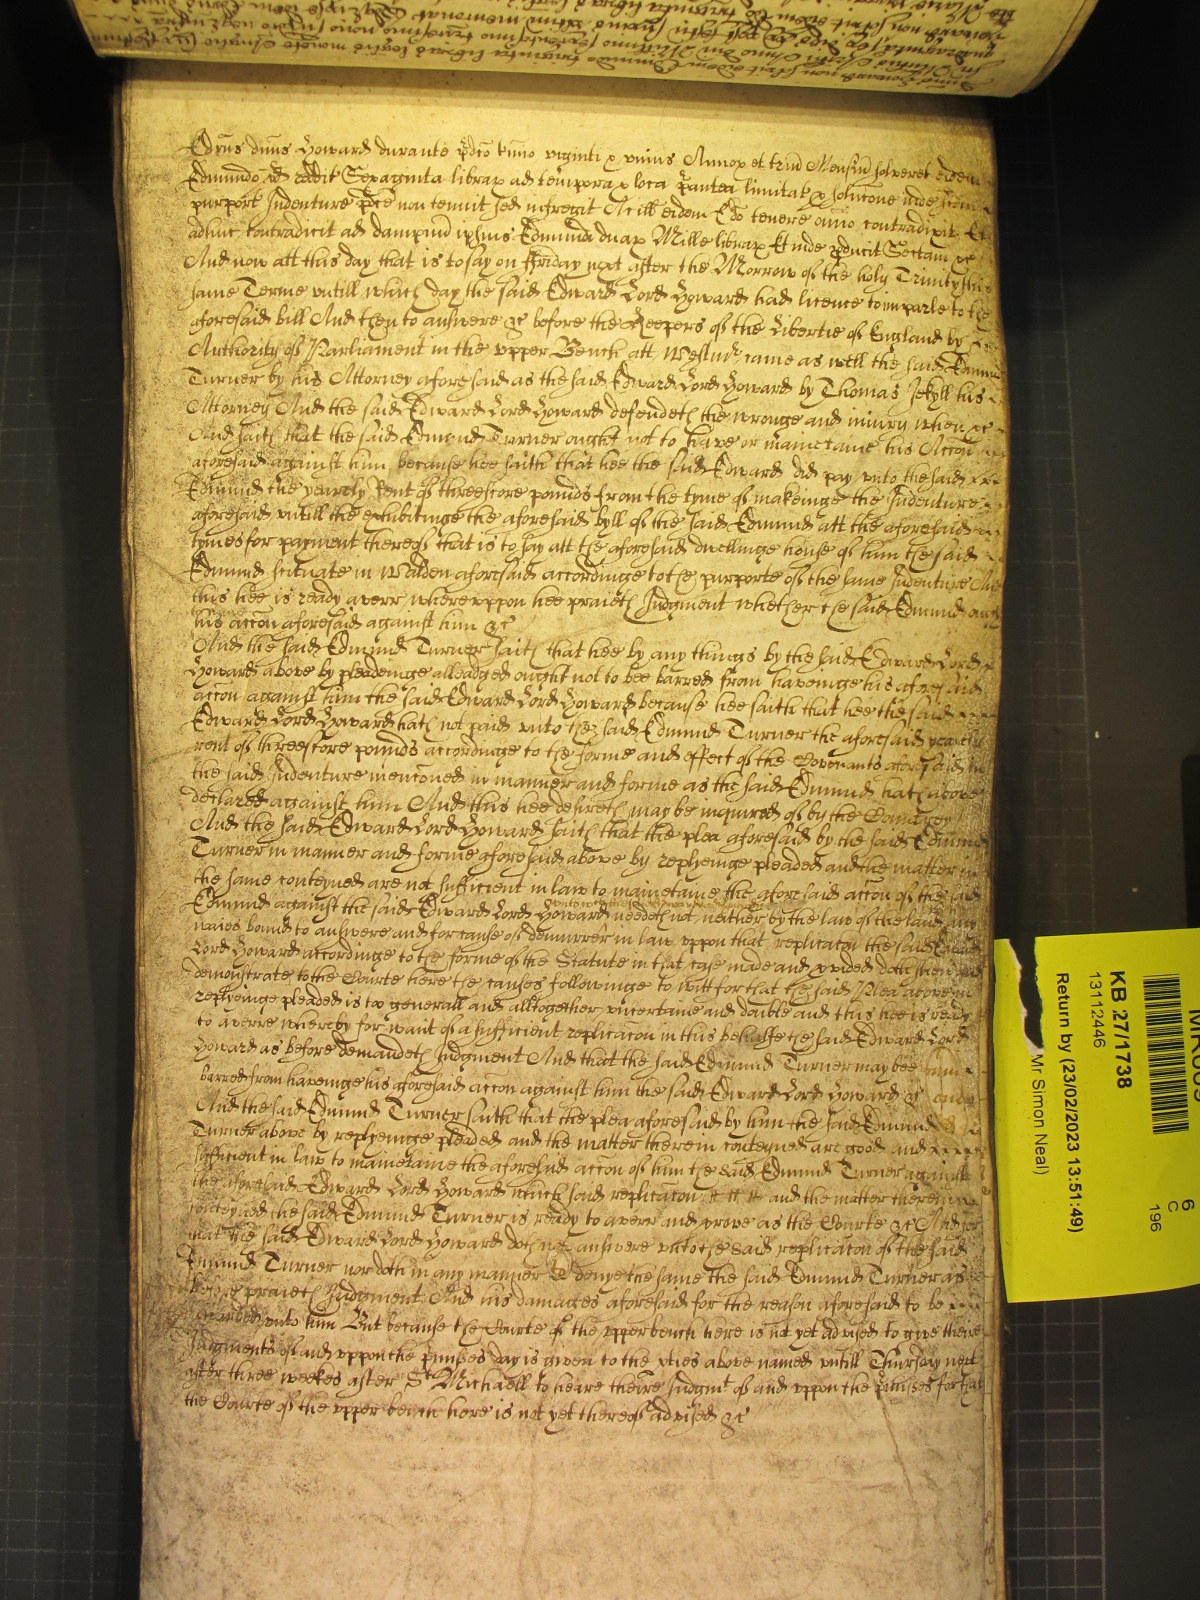 Edrus dnus Howard durante pdco tmio viginti & unius Annox et trid Mensiu solveret eidem
Edmundo reddit Sexaginta librax ad tempora & loca pantea limitat & solucone inde scdm
purport Indenture pce non tenuit sed infregit Ac ill eidem Edo tenere omio contradixit Et
adhuc contradicit ad dampnu ipsius Edmundi duax Mille librax Et inde pducit Sectam &c
And now att this day that is to say on Friday next after the Morrow of the holy Trinity this
same Terme untill which day the said Edward Lord Howard had licence to imparle to the
aforesaid bill And then to answere &c before the Keepers of the Libertie of England by
Authority of Parliament in the upper Bench att Westmr came as well the said Edmund
Turner by his Attorney aforesaid as the said Edward Lord Howard by Thomas Jekyll his
Attorney And the said Edward Lord Howard defendeth the wronge and iniury when &c
And saith that the said Edmund Turner ought not to have or mainetaine his Accon
aforesaid against him because hee saith that hee the said Edward did pay unto the said
Edmund the yearely Rent of threescore pounds from the tyme of makeinge the Indenture
aforesaid untill the exhibitinge the aforesaid byll of the said Edmund att the aforesaid
tymes for payment thereof that is to say att the aforesaid dwellinge house of him the said
Edmund scituate in Walden aforesaid accordinge to the purporte of the same Indenture And
this hee is ready averr whereuppon hee praieth Judgment whether the said Edmund ought
his accon aforesaid against him &c
And the said Edmund Turner saith that hee by any things by the said Edward Lord
Howard above by pleadeinge alleadged ought not to bee barred from haveinge his aforesaid
accon against him the said Edward Lord Howard because hee saith that hee the said
Edward Lord Howard hath not paid unto the said Edmund Turner the aforesaid yearely
rent of threescore pounds accordinge to the forme and effect of the Covenants aforesaid in
the said Indenture menconed in manner and forme as the said Edmund hath above
declared against him And this hee desireth may be inquired of by the Countrey
And the said Edward Lord Howard saith that the plea aforesaid by the said Edmund
Turner in manner and forme aforesaid above by replyeinge pleaded and the matter in
the same conteyned are not sufficient in law to mainetaine the aforesaid accon of the said
Edmund against the said Edward Lord Howard needeth not neither by the law of the land any
waies bound to answere and for cause of demurrer in law uppon that replicacon the said Edward
Lord Howard accordinge to the forme of the Statute in that case made and pvided doth shew and
demonstrate to the Courte here the causes followinge to witt for that the said Plea above in
replyeinge pleaded is too generall and alltogether uncertaine and double and this hee is ready
to averre whereby for want of a sufficient replicacon in this behalfe the said Edward Lord
Howard as before demandeth Judgment And that the said Edmund Turner may bee
barred from haveinge his aforesaid accon against him the said Edward Lord Howard &c
And the said Edmund Turner saith that the plea aforesaid by him the said Edmund
Turner above by replyeinge pleaded and the matter therein conteyned are good and
sufficient in law to mainetaine the aforesaid accon of him the said Edmund Turner against
the aforesaid Edward Lord Howard which said replicacon and the matter therein
conteyned the said Edmund Turner is ready to averr and prove as the Courte &c And for
that the said Edward Lord Howard doth not answere unto the said replicacon of the said
Edmund Turner nor doth in any manner denye the same the said Edmund Turner as
before praieth Judgment And his damages aforesaid for the reason aforesaid to be
awarded unto him But because the Courte of the upper bench here is not yet advised to give theire
Judgments of and uppon the pmisses day is given to the pties above named untill Thursday next
after three weekes after St Michaell to heare theire Judgmt of and uppon the pmisses for that
the Courte of the upper bench here is not yet thereof advised &c
KB 27/1738
13112446
Return by (23/02/2023 13:51:49)
Mr Simon Neal)
6
C
196